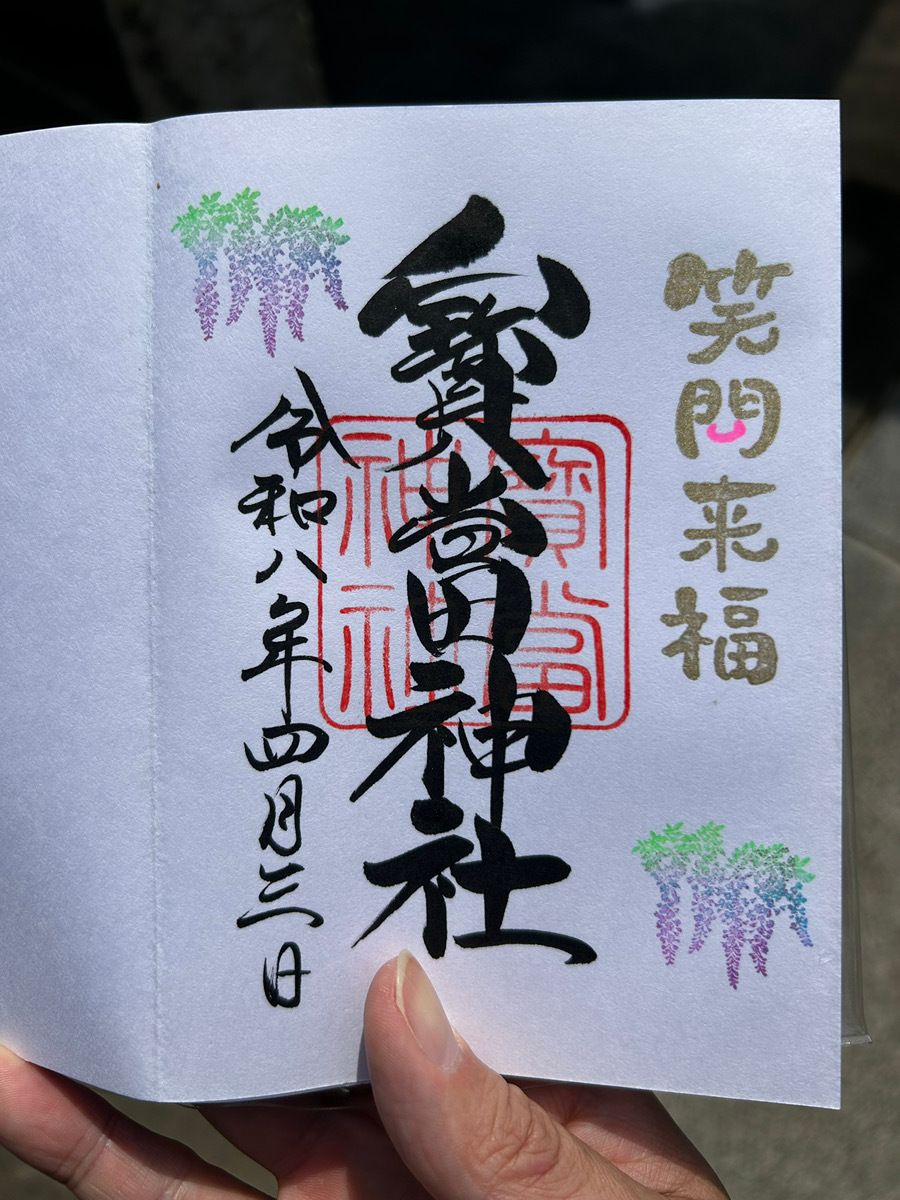 笑門来福
寳當神社
寳當
神社
令和八年四月三日